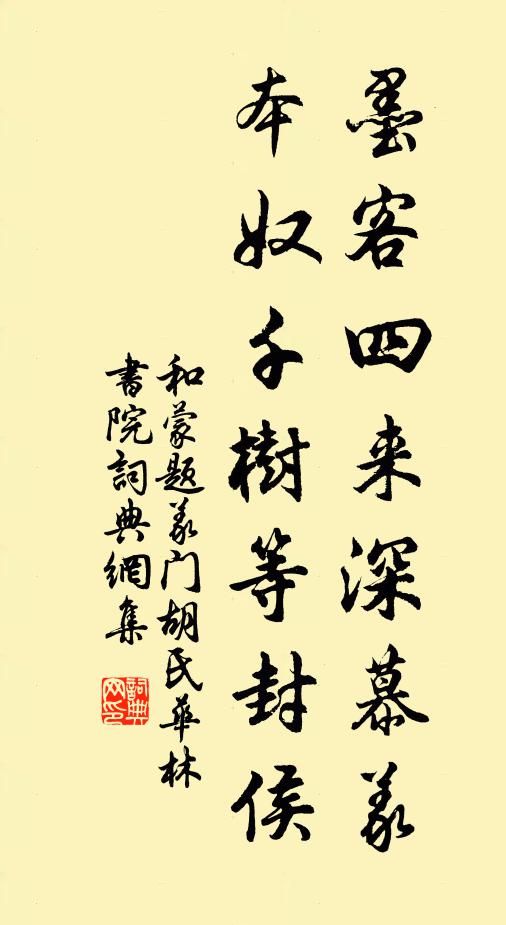 墨客四来深慕義
本奴千樹等封侯
和蒙题義门胡氏華林
書院詞典網集
詞典网印